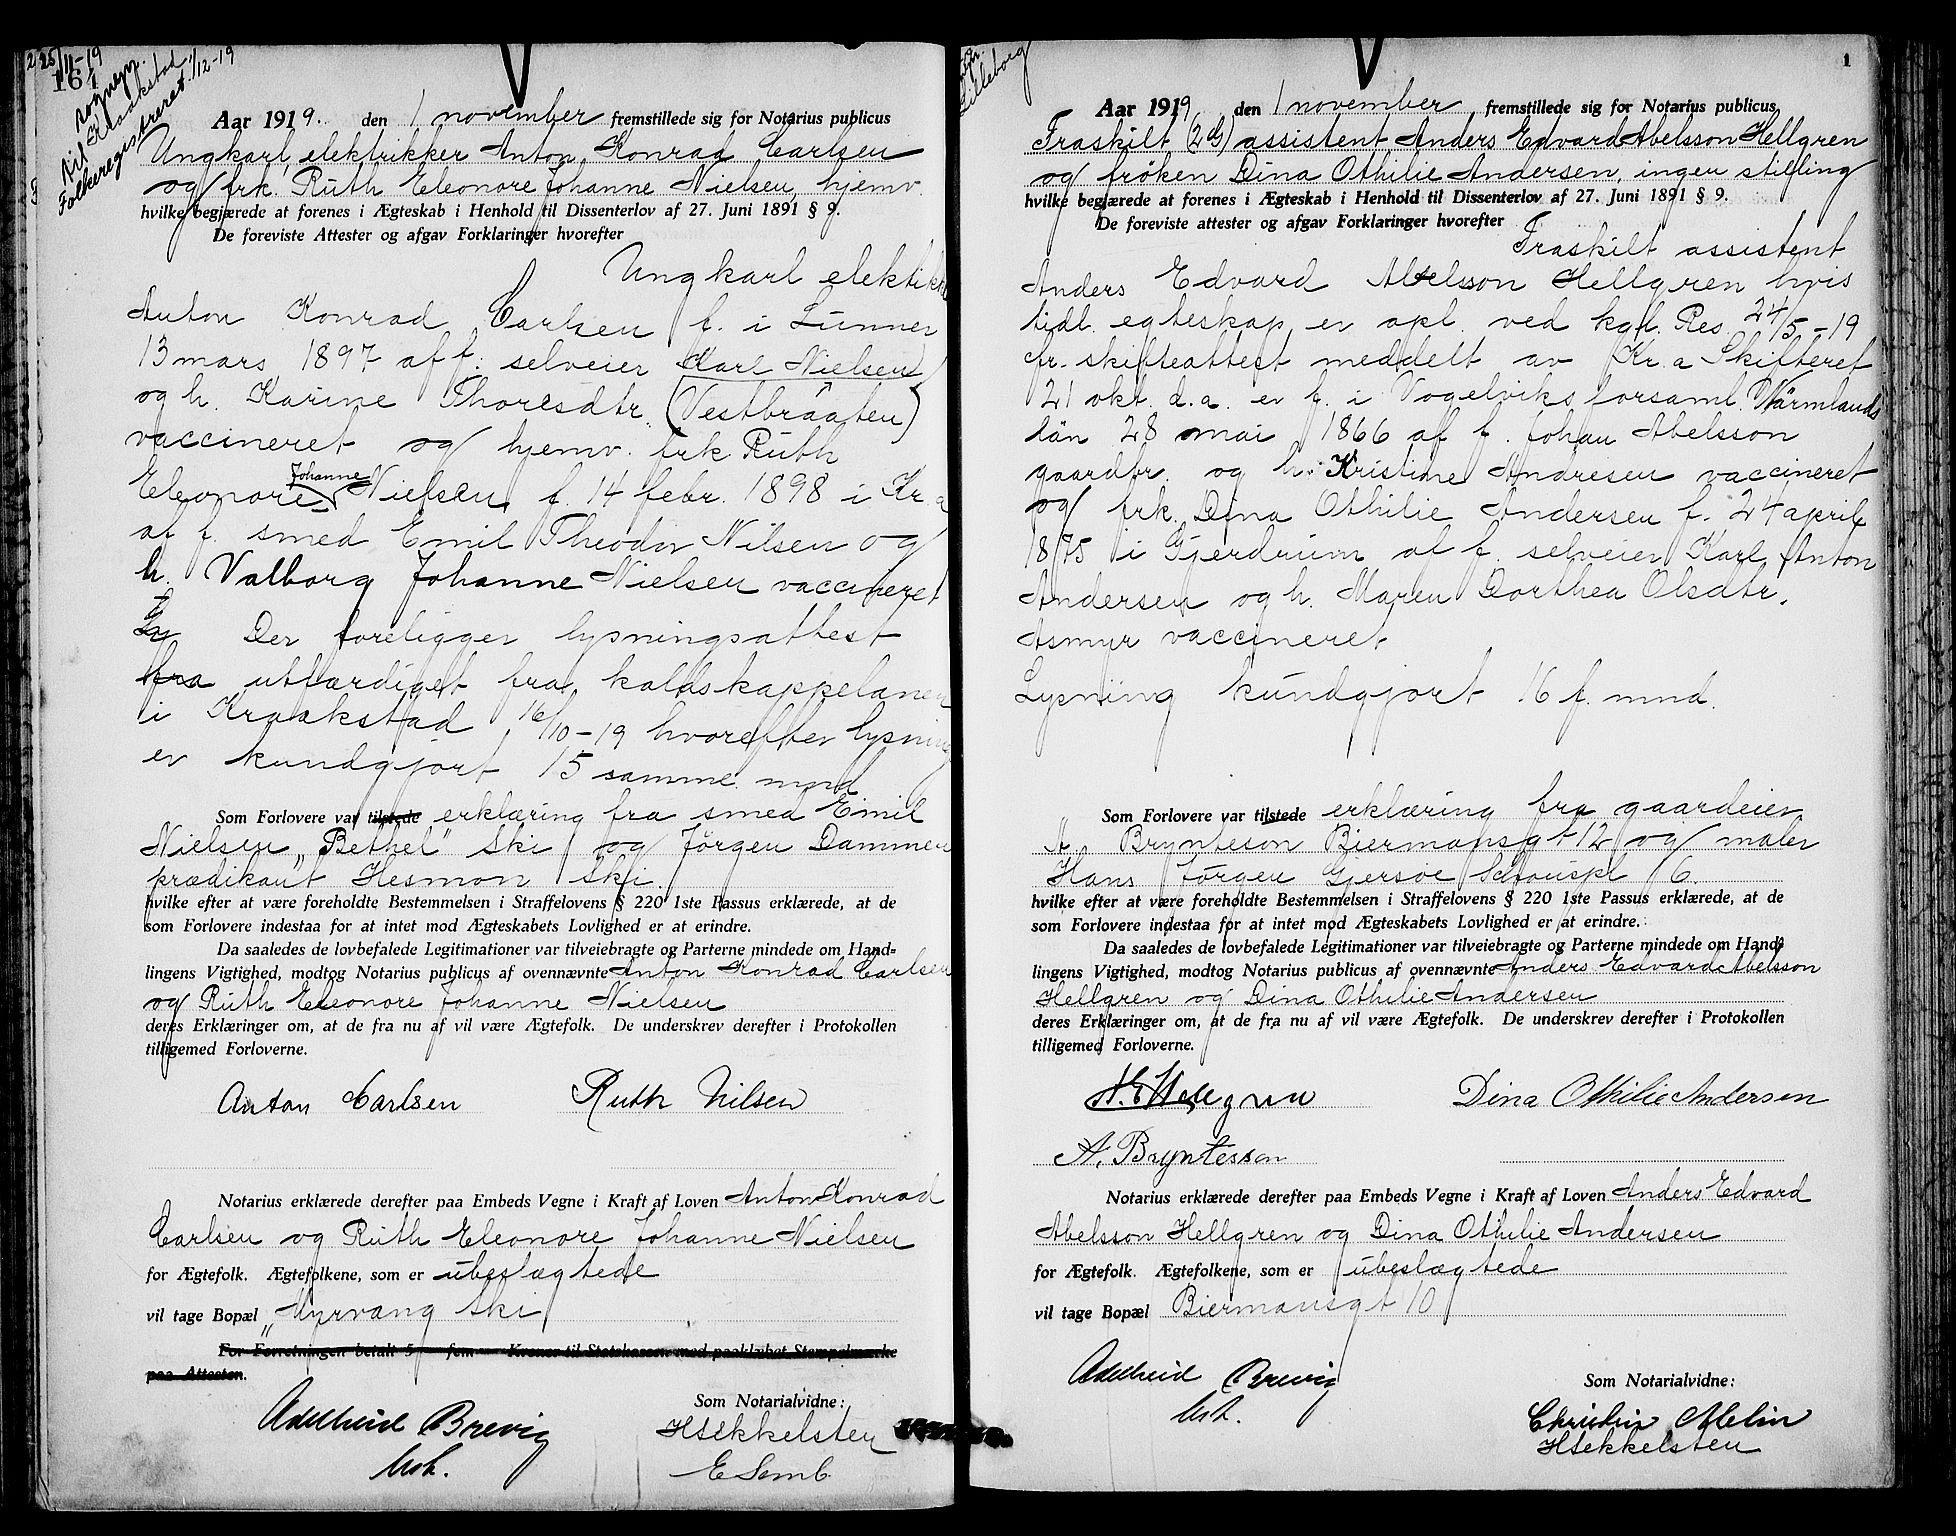 25/11-19
164
sognepr.
til Kraakstad
Folkeregistreret 1/12-19
Aar 1919. den 1 november fremstillede sig for Notarius publicus
Ungkarl, elektrikker Anton Konrad Carlsen
og frk. Ruth Eleonore Johanne Nielsen, hjemv.
hvilke begjærede at forenes i Ægteskab i Henhold til Dissenterlov af 27. Juni 1891 § 9.
De foreviste Attester og afgav Forklaringer hvorefter
Ungkarl elektikke
Anton Konrad Carlsen f. i Lunner
13 mars 1897 af f. selveier Karl Nielsen
og h. Karine Thoresdtr. (Vestbraaten)
vaccineret og hjemv. frk Ruth
Eleonore Johanne Nielsen, f. 14 febr. 1898 i Kr.a
af f. smed Emil Theodor Nilsen og
h. Valborg Johanne Nielsen vaccineret
Der foreligger lysningsattest
fra utfærdiget fra kaldskappelanen
i Kraakstad 16/10-19 hvorefter lysning
er kundgjort 15 samme mnd
Som Forlovere var tilstede erklæring fra smed Emil
Nielsen „Bethel" Ski og Jörgen Dammen
prædikant Hesmon Ski.
hvilke efter at være foreholdte Bestemmelsen i Straffelovens § 220 1ste Passus erklærede, at de
som Forlovere indestaa for at intet mod Ægteskabets Lovlighed er at erindre.
Da saaledes de lovbefalede Legitimationer var tilveiebragte og Parterne mindede om Hand-
lingens Vigtighed, modtog Notarius publicus af ovennævnte Anton Konrad Carlsen
og Ruth Eleonore Johanne Nielsen
deres Erklæringer om, at de fra nu af vil være Ægtefolk. De underskrev derefter i Protokollen
tilligemed Forloverne.
Anton Carlsen Ruth Nilsen
Notarius erklærede derefter paa Embeds Vegne i Kraft af Loven Anton Konrad
Carlsen og Ruth Eleonore Johanne Nielsen
for Ægtefolk. Ægtefolkene, som er ubeslægtede
vil tage Bopæl „Myrvang Ski
For Forretningen betalt 5 — fem — Kroner til Statskassen med paaklæbet Stempelmærke
paa Attesten.
Adelheid Brevig
Som Notarialvidne:
HSekkelsten
E Semb
cfr.
Lilleborg
1
Aar 1919 den 1 november fremstillede sig for Notarius publicus
Fraskilt (2 G) assistent Anders Edvard Abelsson Hellgren
og fröken Dina Othilie Andersen, ingen stilling
hvilke begjærede at forenes i Ægteskab i Henhold til Dissenterlov af 27. Juni 1891 § 9.
De foreviste attester og afgav Forklaringer hvorefter
Fraskilt assistent
Anders Edvard Abelsson Hellgren hvis
tidl. egteskap er opl. ved kgl. Res. 24/5-19
cfr. skifteattest meddelt av Kr.a Skifteret
21 okt. d.a. er f. i Vogelviks forsaml. Wärmlands
län 28 mai 1866 af f. Johan Abelsson
gaardbr. og h. Kristine Andresen vaccineret
og frk. Dina Othilie Andersen f. 24 april
1875 i Gjerdrum af f. selveier Karl Anton
Andersen og h. Maren Dorthea Olsdtr.
Asmyr vaccineret
Lysning kundgjort 16 f. mnd.
Som Forlovere var tilstede erklæring fra gaardeier
A Brynteson Biermansgt 12 og maler
Hans Jörgen Gjersöe Schouspl 6.
hvilke efter at være foreholdte Bestemmelsen i Straffelovens § 220 1ste Passus erklærede, at de
som Forlovere indestaa for at intet mod Ægteskabets Lovlighed er at erindre.
Da saaledes de lovbefalede Legitimationer var tilveiebragte og Parterne mindede om Hand-
lingens Vigtighed, modtog Notarius publicus af ovennævnte Anders Edvard Abelsson
Hellgren og Dina Othilie Andersen
deres Erklæringer om, at de fra nu af vil være Ægtefolk. De underskrev derefter i Protokollen
tilligemed Forloverne.
A. E Hellgren Dina Othilie Andersen
A. Bryntesson
Notarius erklærede derefter paa Embeds Vegne i Kraft af Loven Anders Edvard
Abelsson Hellgren og Dina Othilie Andersen
for Ægtefolk. Ægtefolkene, som er ubeslægtede
vil tage Bopæl Biermansgt 10
Adelheid Brevig
Som Notarialvidne:
Christin Abelin
HSekkelsten